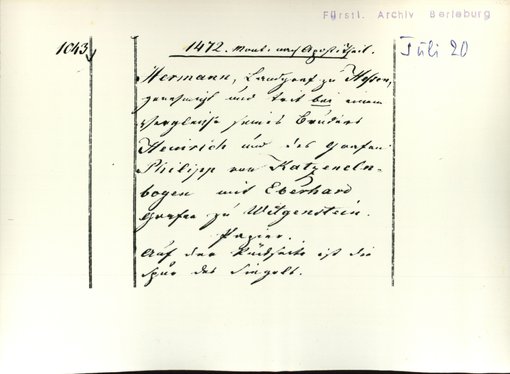 Fürstl. Archiv Berleburg
1043
1472. Mont. nach Apost. theil.
Juli 20
Hermann, Landgraf zu Hessen,
genehmigt und tritt bei einem
Vergleiche seines Bruders
Heinrich und des Grafen
Philipp von Katzeneln-
bogen mit Eberhard
Grafen zu Witgenstein.
Papier.
Auf der Rückseite ist die
Spur des Siegels.